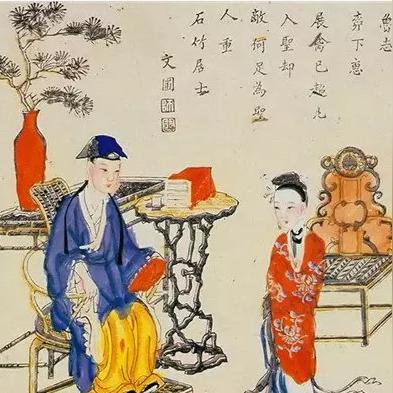 魯志
奔下惠
展禽已超凡
入聖却
敵何足為聖
人重
石竹居士
文圃